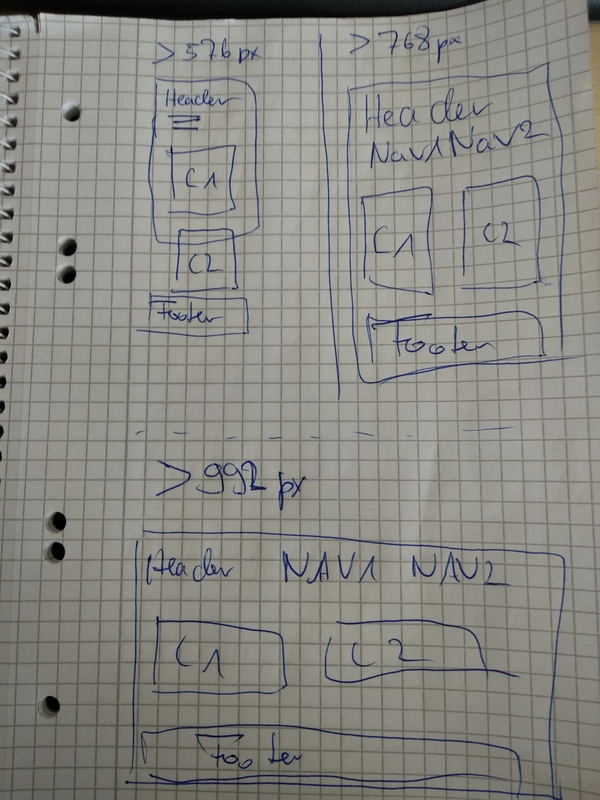 > 576px
Header
C1
C2
Footer
> 768px
Header
Nav1 Nav2
C1 C2
Footer
> 992px
Header NAV1 NAV2
C1 C2
Footer